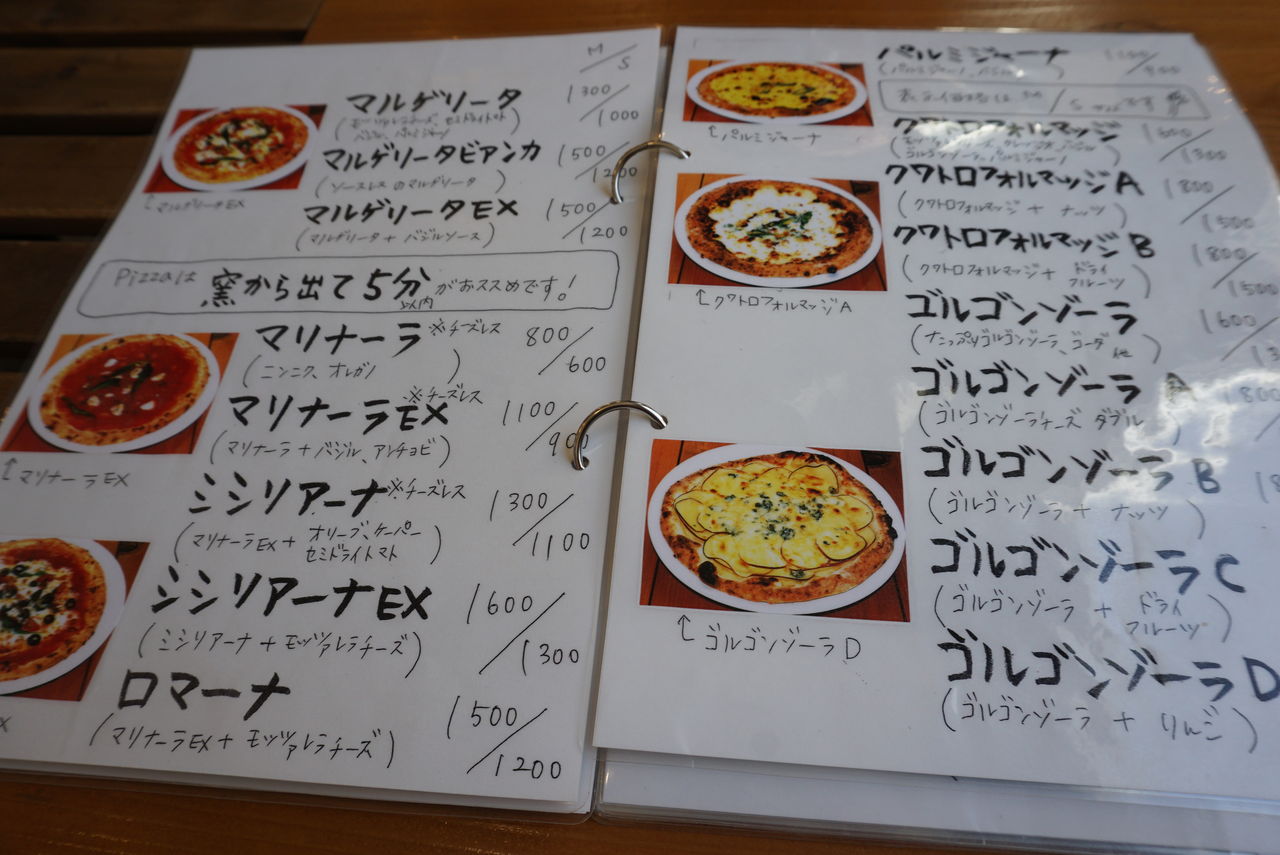 M/S
マルゲリータ 1300/1000
(モッツァレラチーズ、セミドライトマト
バジル、パルミジャーノ)
マルゲリータビアンカ 1500/1200
(ソースレスのマルゲリータ)
↑マルゲリータEX
マルゲリータEX 1500/1200
(マルゲリータ+バジルソース)
Pizzaは 窯から出て5分以内がおススメです!
マリナーラ ※チーズレス 800/600
(ニンニク、オレガノ)
マリナーラEX ※チーズレス 1100/900
(マリナーラ+バジル、アンチョビ)
↑マリナーラEX
シシリアーナ ※チーズレス 1300/1100
(マリナーラEX+オリーブ、ケーパー
セミドライトマト)
シシリアーナEX 1600/1300
(シシリアーナ+モッツァレラチーズ)
ロマーナ 1500/1200
(マリナーラEX+モッツァレラチーズ)
X
パルミジャーナ
表示価格は M/S サイズです
↑パルミジャーナ
クワトロフォルマッジ 1600/1300
ゴルゴンゾーラ、パルミジャーノ)
クワトロフォルマッジA 1800/1500
(クワトロフォルマッジ+ナッツ)
クワトロフォルマッジB 1800/1500
(クワトロフォルマッジ+ドライ
フルーツ)
↑クワトロフォルマッジA
ゴルゴンゾーラ 1600/
(たっぷりゴルゴンゾーラ、ゴーダ 他)
ゴルゴンゾーラA 1800
(ゴルゴンゾーラチーズ ダブル)
ゴルゴンゾーラB
(ゴルゴンゾーラ+ナッツ)
ゴルゴンゾーラC
(ゴルゴンゾーラ+ドライ
フルーツ)
↑ゴルゴンゾーラD
ゴルゴンゾーラD
(ゴルゴンゾーラ+りんご)